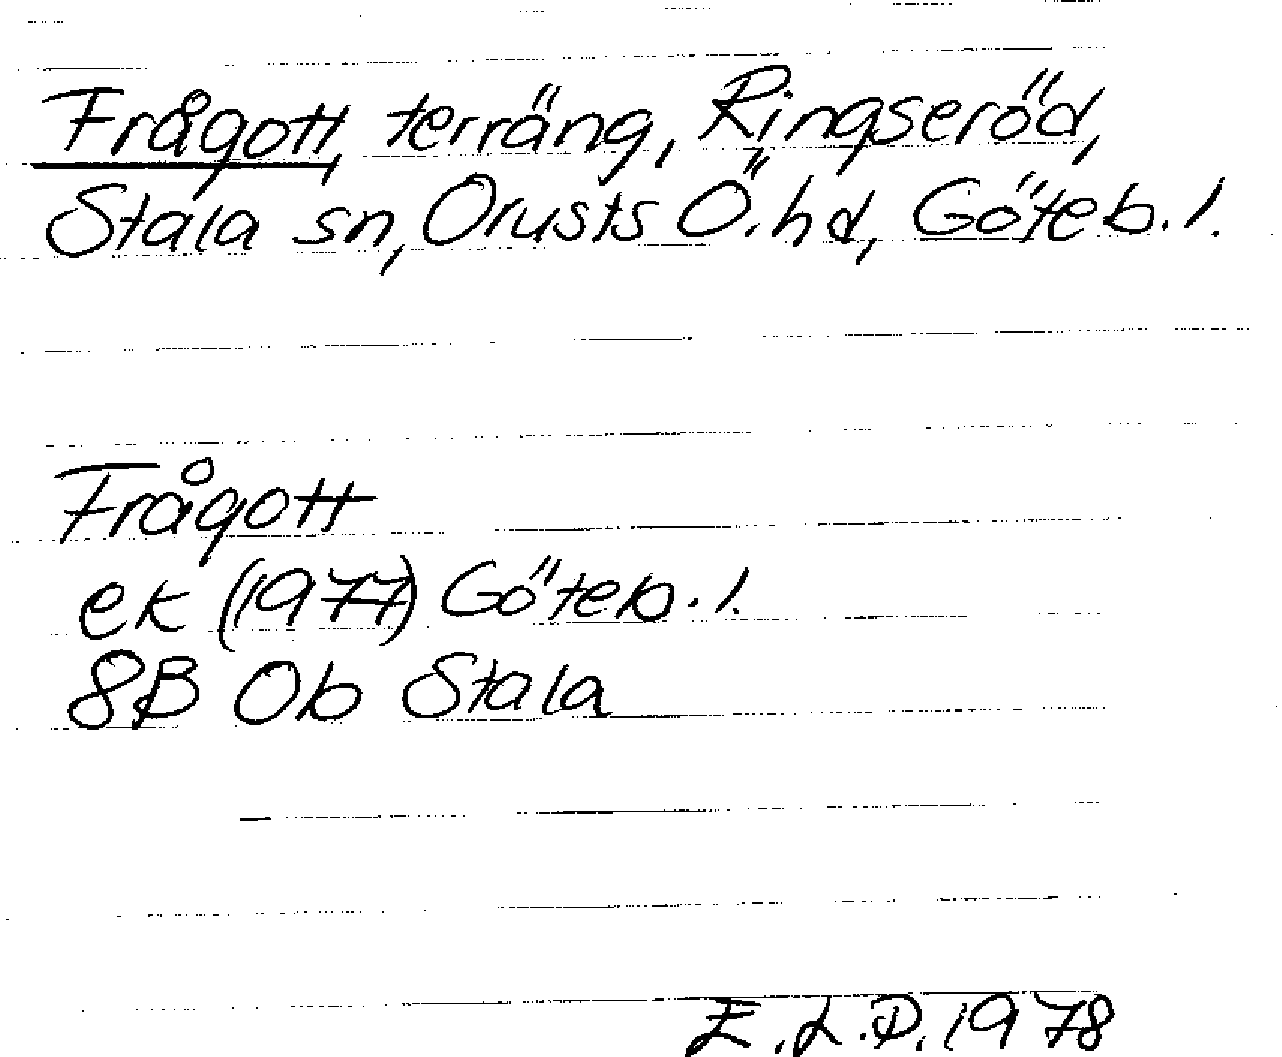 Frågott, terräng, Ringseröd,
Stala sn, Orusts Ö. hd, Göteb. l.
Frågott
ek (1977) Göteb. l.
8B 0b Stala
E.L.P. 1978